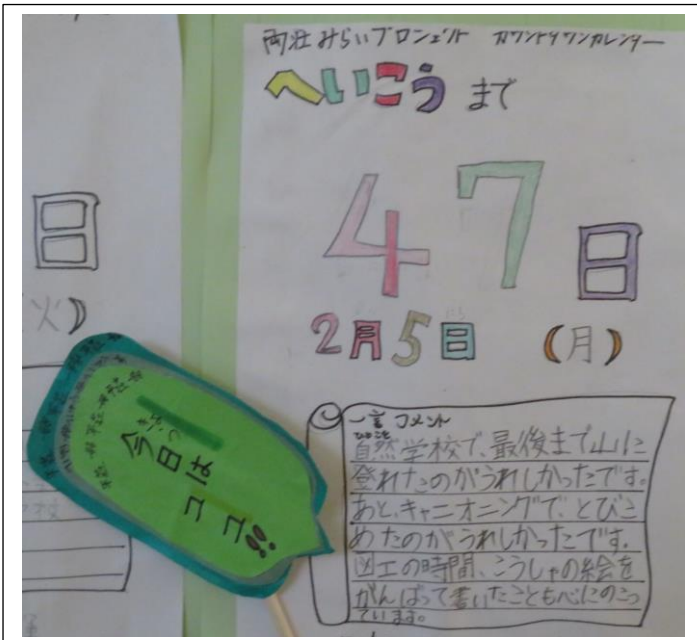 両荘みらいプロジェクト カウントダウンカレンダー
へいこう まで
47日
2月5日 (月)
日
火)
今日は
ココ!!
一言コメント
自然学校で、最後まで山に
登れたのがうれしかったです。
あと、キャニオニングで、とびこ
めたのがうれしかったです。
図工の時間、こうしゃの絵を
がんばって書いたことも心にのこっ
ています。